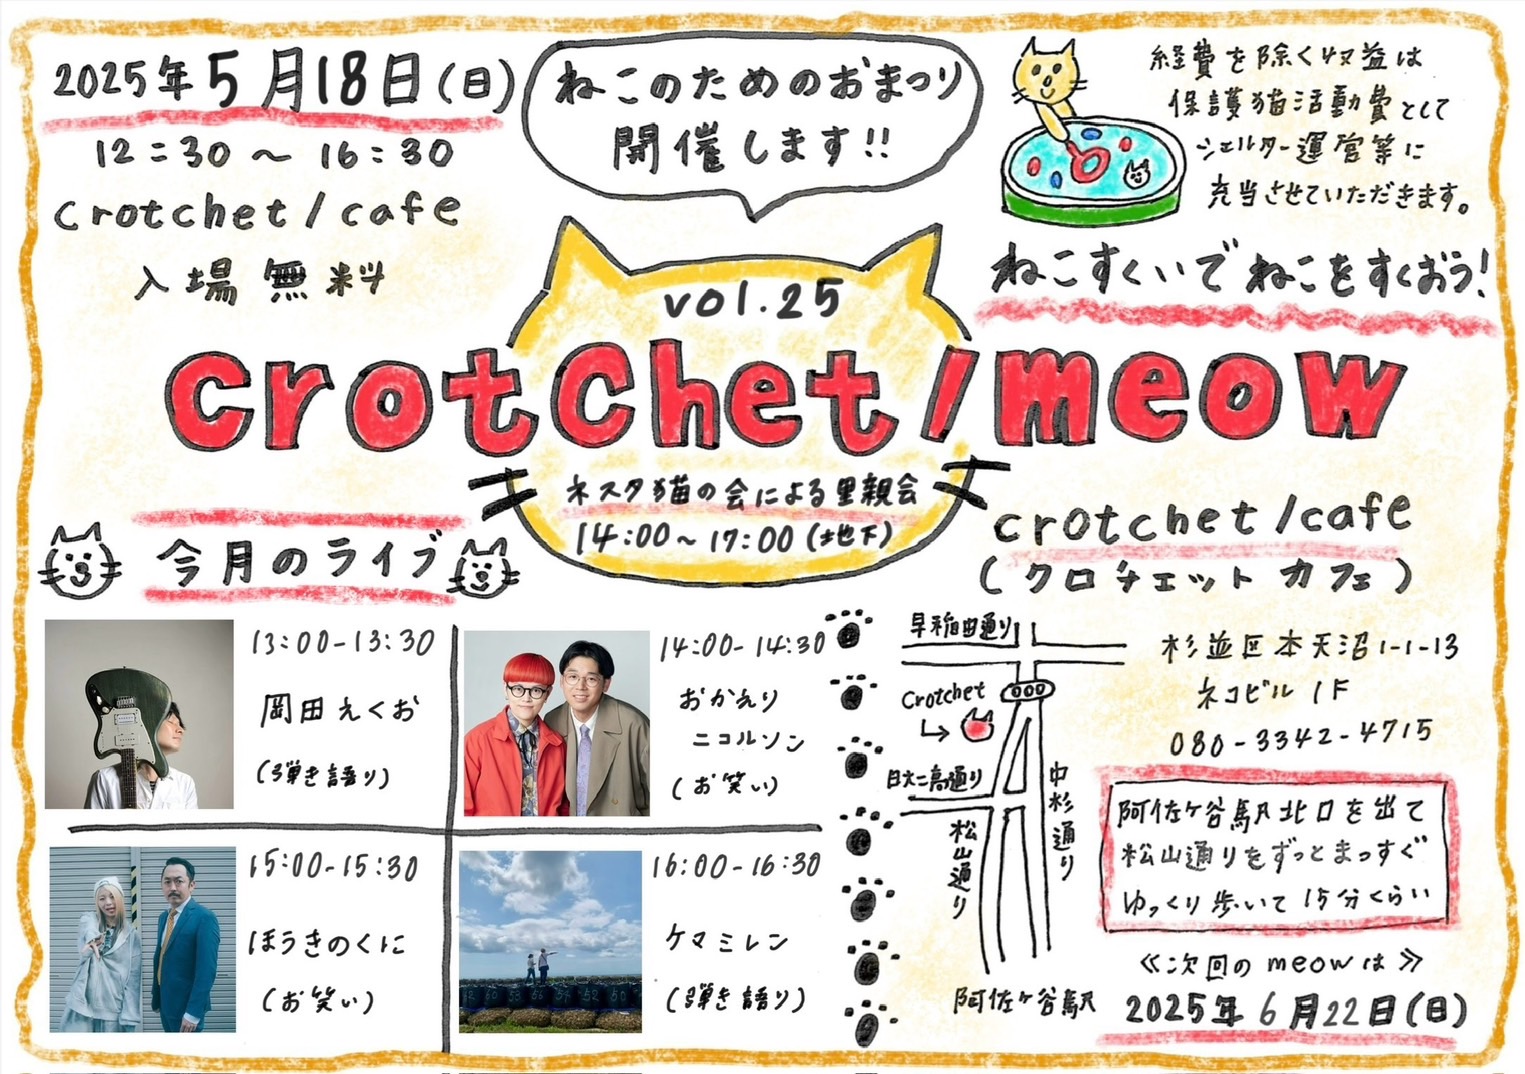 2025年5月18日(日)
12:30～16:30
crotchet/cafe
入場無料
ねこのためのおまつり
開催します!!
経費を除く収益は
保護猫活動費として
シェルター運営等に
充当させていただきます。
ねこすくいでねこをすくおう!
vol.25
crotchet/meow
ネスタ猫の会による里親会
14:00～17:00(地下)
今月のライブ
13:00-13:30
岡田えくお
(弾き語り)
14:00-14:30
おかえり
ニコルソン
(お笑い)
15:00-15:30
ほうきのくに
(お笑い)
16:00-16:30
ケマミレン
(弾き語り)
crotchet/cafe
(クロチェットカフェ)
早稲田通り
crotchet
日大二高通り
松山通り
中杉通り
阿佐ヶ谷駅
杉並区本天沼1-1-13
ネコビル1F
080-3342-4715
阿佐ヶ谷駅北口を出て
松山通りをずっとまっすぐ
ゆっくり歩いて15分くらい
≪次回のmeowは≫
2025年6月22日(日)